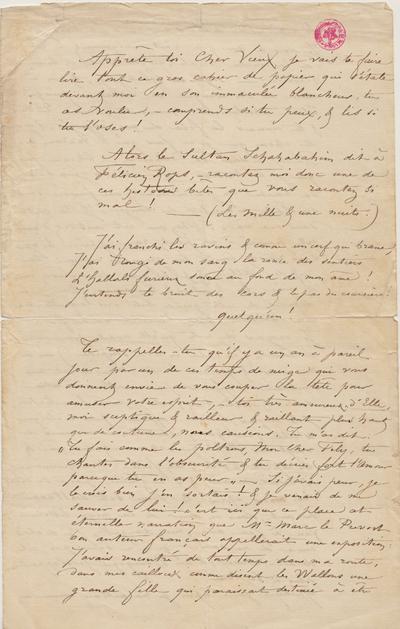 Apprête toi Cher Vieux je vais te faire
lire tout ce gros cahier de papier qui s'étale
devant moi en son immaculée blancheur, tu
as voulu, – comprends si tu peux, & lis si
tu l'oses !
Alors le Sultan Schahabahim dit à
Félicien Rops, – racontez moi donc une de
ces histoires bêtes que vous racontez si
mal ! — (Les mille & une nuits.)
J'ai franchi les ravins & comme un cerf qui brame,
J'ai rougi de mon sang la ronce des sentiers
L'Hallali furieux sonne au fond de mon âme !
J'entends le bruit des cors & le pas du coursier.
Quelqu'un !
Te rappelles-tu qu'il y a un an à pareil
jour par un de ces temps de neige qui vous
donnent envie de vous couper la tête pour
amuser votre esprit, – toi très amoureux d'Elle,
moi sceptique & railleur & raillant plus haut
que de coutume, nous causions. Tu m'as dit :
« Tu fais comme les poltrons, Mon Cher Fély, tu
chantes dans l'obscurité & tu décries fort l'Amour
parceque tu en as peur » – Si j'avais peur, je
le crois bien j'en sortais ! & je venais de me
sauver de lui ! c'est ici que ce place cet
éternelle narration que Mr Marc le Prevost
bon auteur français appellerait une exposition.
J'avais rencontré de tout temps dans ma route,
dans mes cailloux comme disent les Wallons une
grande fille qui paraissait destinée à être